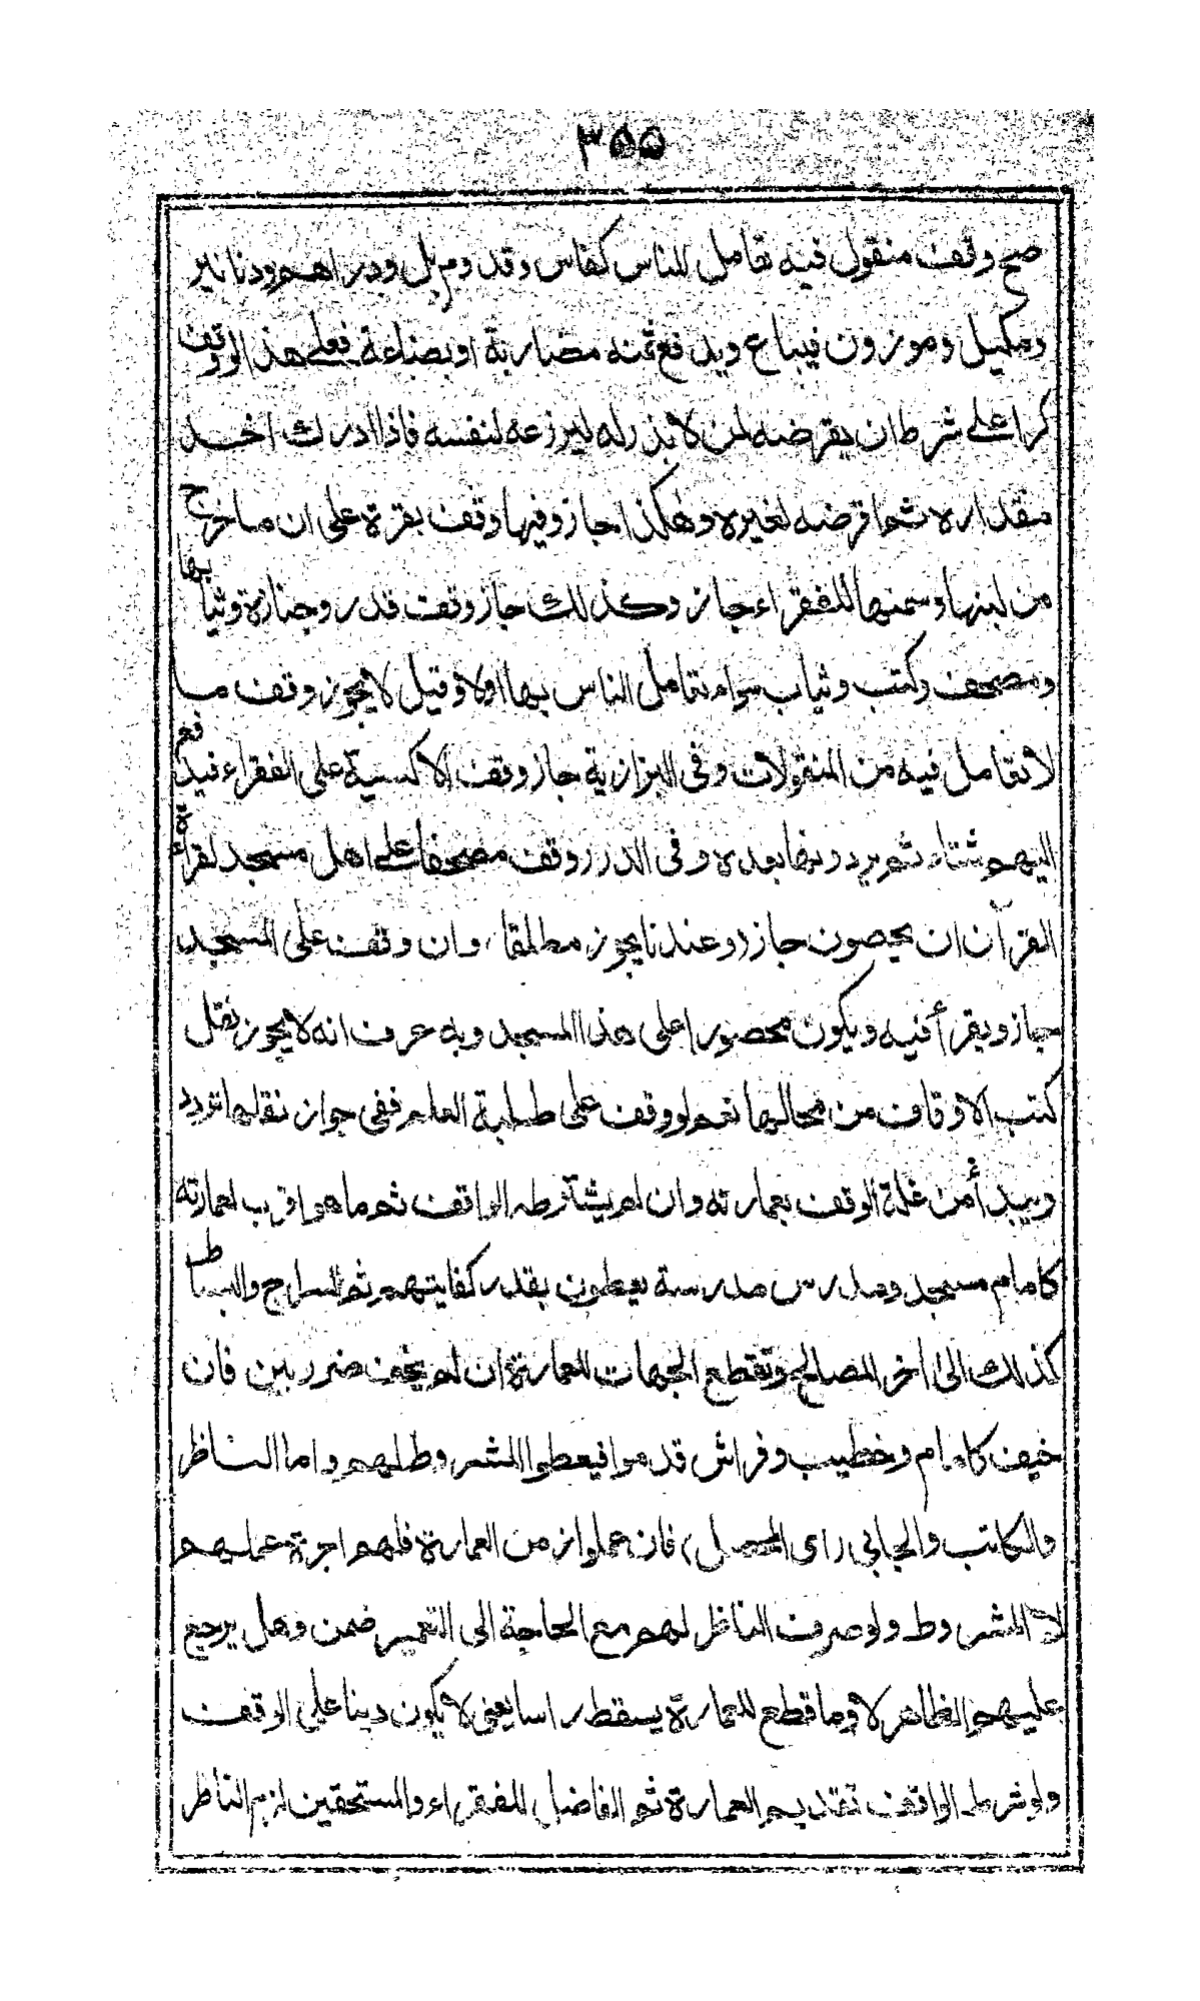 ٣٥٥
صح وقف منقول فيه تعامل للناس كفاس وقدوم بل ودراهم ودنانير
ومكيل وموزون فيباع ويدفع ثمنه مضاربة او بضاعة فعلى هذا لو وقف
كرا على شرط ان يقرضه لمن لا بذر له ليزرعه لنفسه فاذا ادرك اخذ
مقداره ثم اقرضه لغيره وهكذا جاز وفيها وقف بقرة على ان ما خرج
من لبنها وسمنها للفقراء جاز وكذلك جاز وقف قدر وجنازة وثيابها
ومصحف وكتب وثياب سواء تعامل الناس بها اولا وقيل لا يجوز وقف ما
لا تعامل فيه من المنقولات وفى البزازية جاز وقف الاكسية على الفقراء فيدفع
اليهم شتاء ثم يردونها بعده وفى الدرر وقف مصحفا على اهل مسجد لقراءة
القرآن ان يحصون جاز (وعندنا يجوز مطلقا) وان وقف على المسجد
جاز ويقرأ فيه ويكون محصورا على هذا المسجد وبه عرف انه لا يجوز نقل
كتب الاوقاف من محالها نعم لو وقف على طلبة العلم ففى جواز نقلها تردد
ويبدأ من غلة الوقف بعمارته وان لم يشترطه الواقف ثم ما هو اقرب لعمارته
كامام مسجد ومدرس مدرسة يعطون بقدر كفايتهم ثم السراج والبساط
كذلك الى اخر المصالح وتقطع الجهات للعمارة ان لم يخف ضرر بين فان
خيف كامام وخطيب وفراش قدموا فيعطوا المشروط لهم واما الناظر
والكاتب والجابى (اى المحصل) فان عملوا زمن العمارة فلهم اجرة عملهم
لا المشروط ولو صرف الناظر لهم مع الحاجة الى التعمير ضمن وهل يرجع
عليهم الظاهر لا وما قطع للعمارة يسقط راسا يعنى لا يكون دينا على الوقف
ولو شرط الواقف تقديم العمارة ثم الفاضل للفقراء والمستحقين لزم الناظر